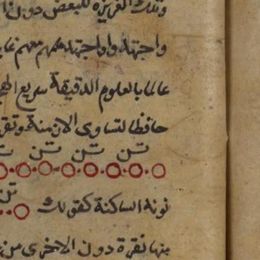 وتلك الغريزة للبعض دون ا
واجتهد واواجتهد معهم
عالما بالعلوم الدقيقة سريع
حافظا لتساوى الازمنة وتق
تن تن تن ت
نونه الساكنة كقولك تن
منها نقرة دون الاخرى من